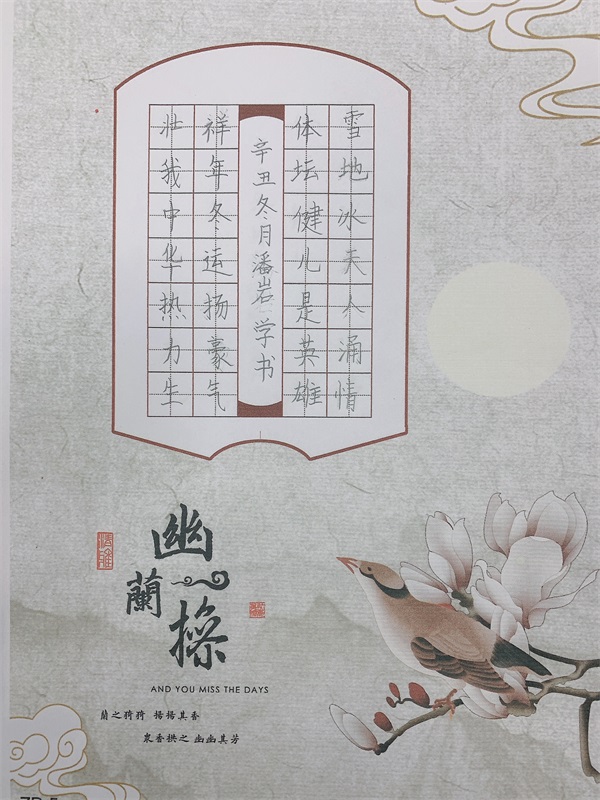 雪地冰天涌情
体坛健儿是英雄
辛丑冬月潘岩学书
祥年冬运扬豪气
壮我中华热力生
幽蘭操
AND YOU MISS THE DAYS
蘭之猗猗 揚揚其香
衆香拱之 幽幽其芳